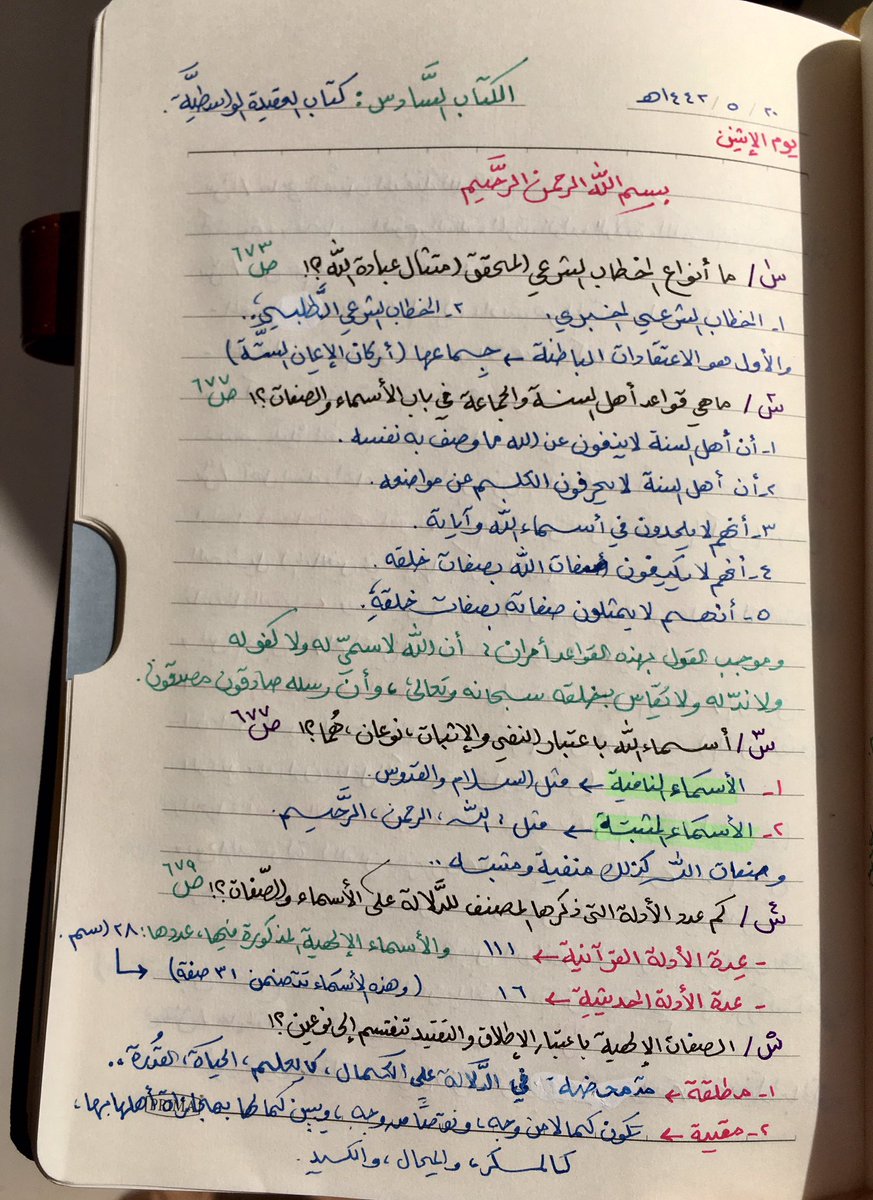 ٢٠ / ٥ / ١٤٤٢هـ
الكتاب السَّادس: كتاب العقيدة الواسطيَّة.
يوم الإثنين
بسم الله الرحمن الرَّحيم
س١/ ما أنواع الخطاب الشرعي المحقق امتثال عبادة الله؟! ص٦٧٣
١- الخطاب الشرعي الخبري. ٢- الخطاب الشرعي الطَّلبي..
والأول هو الاعتقادات الباطنة ← جماعها (أركان الإيمان الستَّة)
س٢/ ما هي قواعد أهل السنة والجماعة في باب الأسماء والصفات؟! ص٦٧٧
١- أن أهل السنة لا ينفون عن الله ما وصف به نفسه.
٢- أن أهل السنة لا يحرفون الكلم عن مواضعه.
٣- أنهم لا يلحدون في أسماء الله وآياته.
٤- أنهم لا يكيفون صفات الله بصفات خلقه.
٥- أنهم لا يمثلون صفاته بصفات خلقه.
وموجب القول بهذه القواعد أمران: أن الله لا سميّ له ولا كفو له
ولا ندّ له ولا يُقاس بخلقه سبحانه وتعالى، وأن رسله صادقون مصدقون.
س٣/ أسماء الله باعتبار النفي والإثبات، نوعان، هُما؟! ص٦٧٧
١- الأسماء النافية ← مثل السلام والقدوس.
٢- الأسماء المثبتة ← مثل: الله، الرحمن، الرَّحيم.
وصفات الله كذلك منفية ومثبته..
س٤/ كم عدد الأدلة التي ذكرها المصنف للدَّلالة على الأسماء والصِّفات؟! ص٦٧٩
- عدة الأدلة القرآنية ← ١١١ والأسماء الإلهية المذكورة فيها، عددها: ٢٨ اسم.
- عدة الأدلة الحديثية ← ١٦ (وهذه الأسماء تتضمن ٣١ صفة)
س٥/ الصفات الإلهية باعتبار الإطلاق والتقييد تنقسم إلى نوعين؟!
١- مطلقة ← متمحضة في الدَّلالة على الكمال، كالعلم، الحياة، القُدرة..
٢- مقيدة ← تكون كمالا من وجه، ونقصًا من وجه، ويبين كمالها بمجازاة أهلها بها،
كالمكر، والمحال، والكيد.